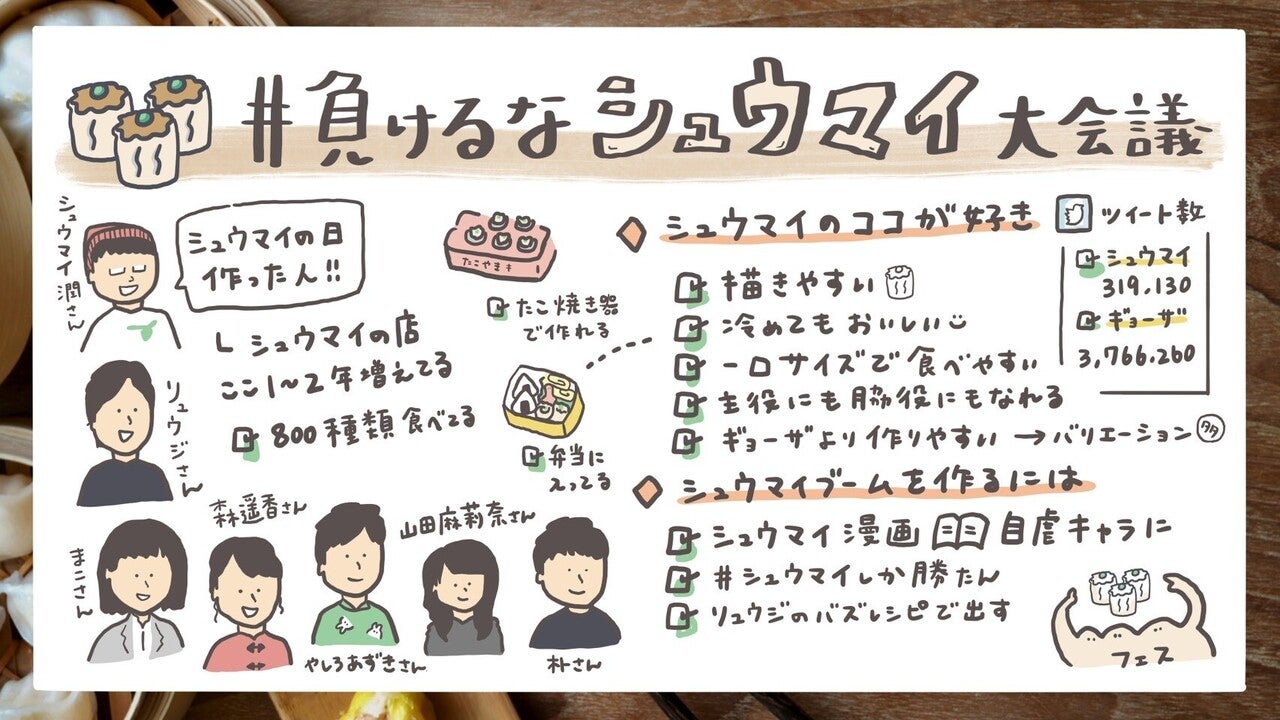 #負けるなシュウマイ大会議
シュウマイ潤さん
シュウマイの日
作ったん!!
シュウマイの店
ここ1〜2年増えてる
800種類食べてる
リュウジさん
たこやき
たこ焼き器
で作れる
弁当に
入ってる
まこさん
森遥香さん
やしろあずきさん
山田麻莉奈さん
朴さん
シュウマイのココが好き
描きやすい
冷めてもおいしい
一口サイズで食べやすい
主役にも脇役にもなれる
ギョーザより作りやすい→バリエーション多
ツイート数
シュウマイ
319,130
ギョーザ
3,766,260
シュウマイブームを作るには
シュウマイ漫画 自虐キャラに
#シュウマイしか勝たん
リュウジのバズレシピで出す
フェス